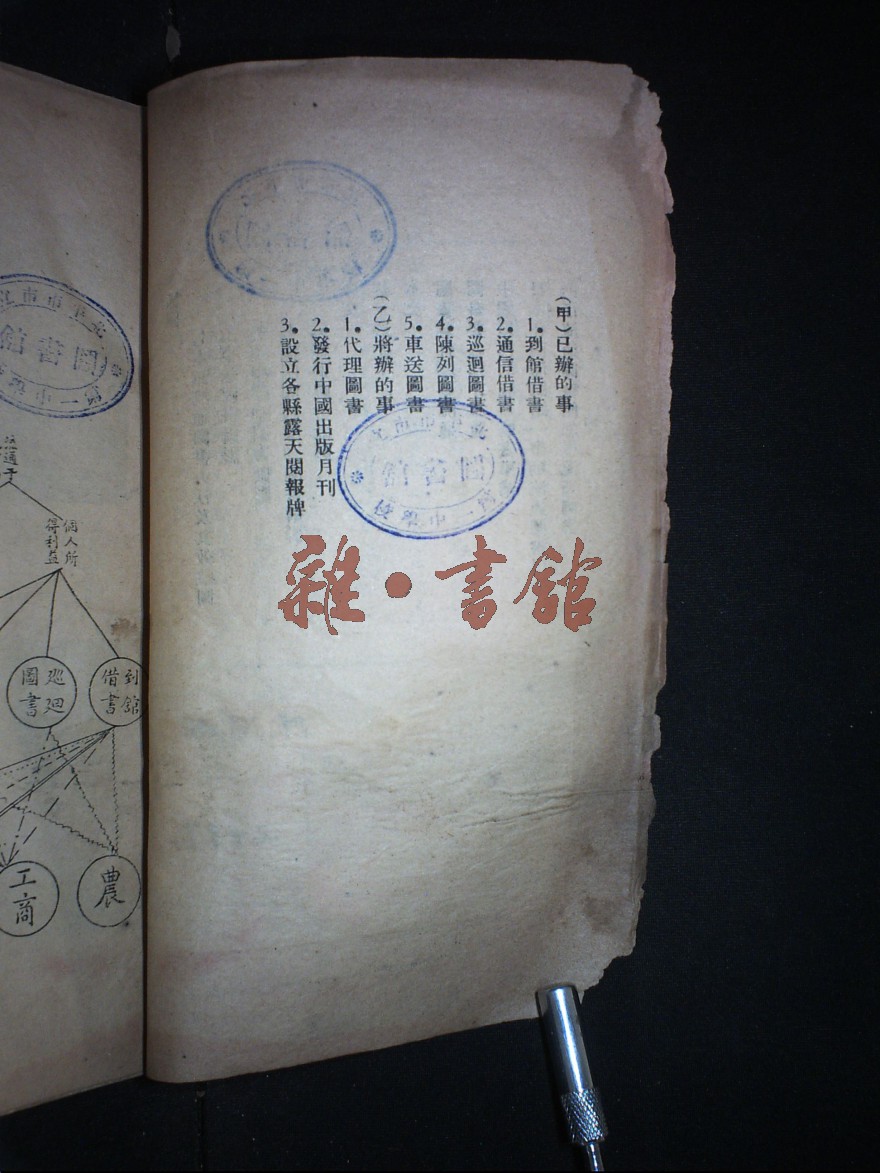 (甲)已辦的事
1.到館借書
2.通信借書
3.巡迴圖書
4.陳列圖書
5.車送圖書
(乙)將辦的事
1.代理圖書
2.發行中國出版月刊
3.設立各縣露天閱報牌
圖書館
第一中學校
雜·書館
個人所
得利益
到館
借書
巡迴
圖書
農
工商
圖書館